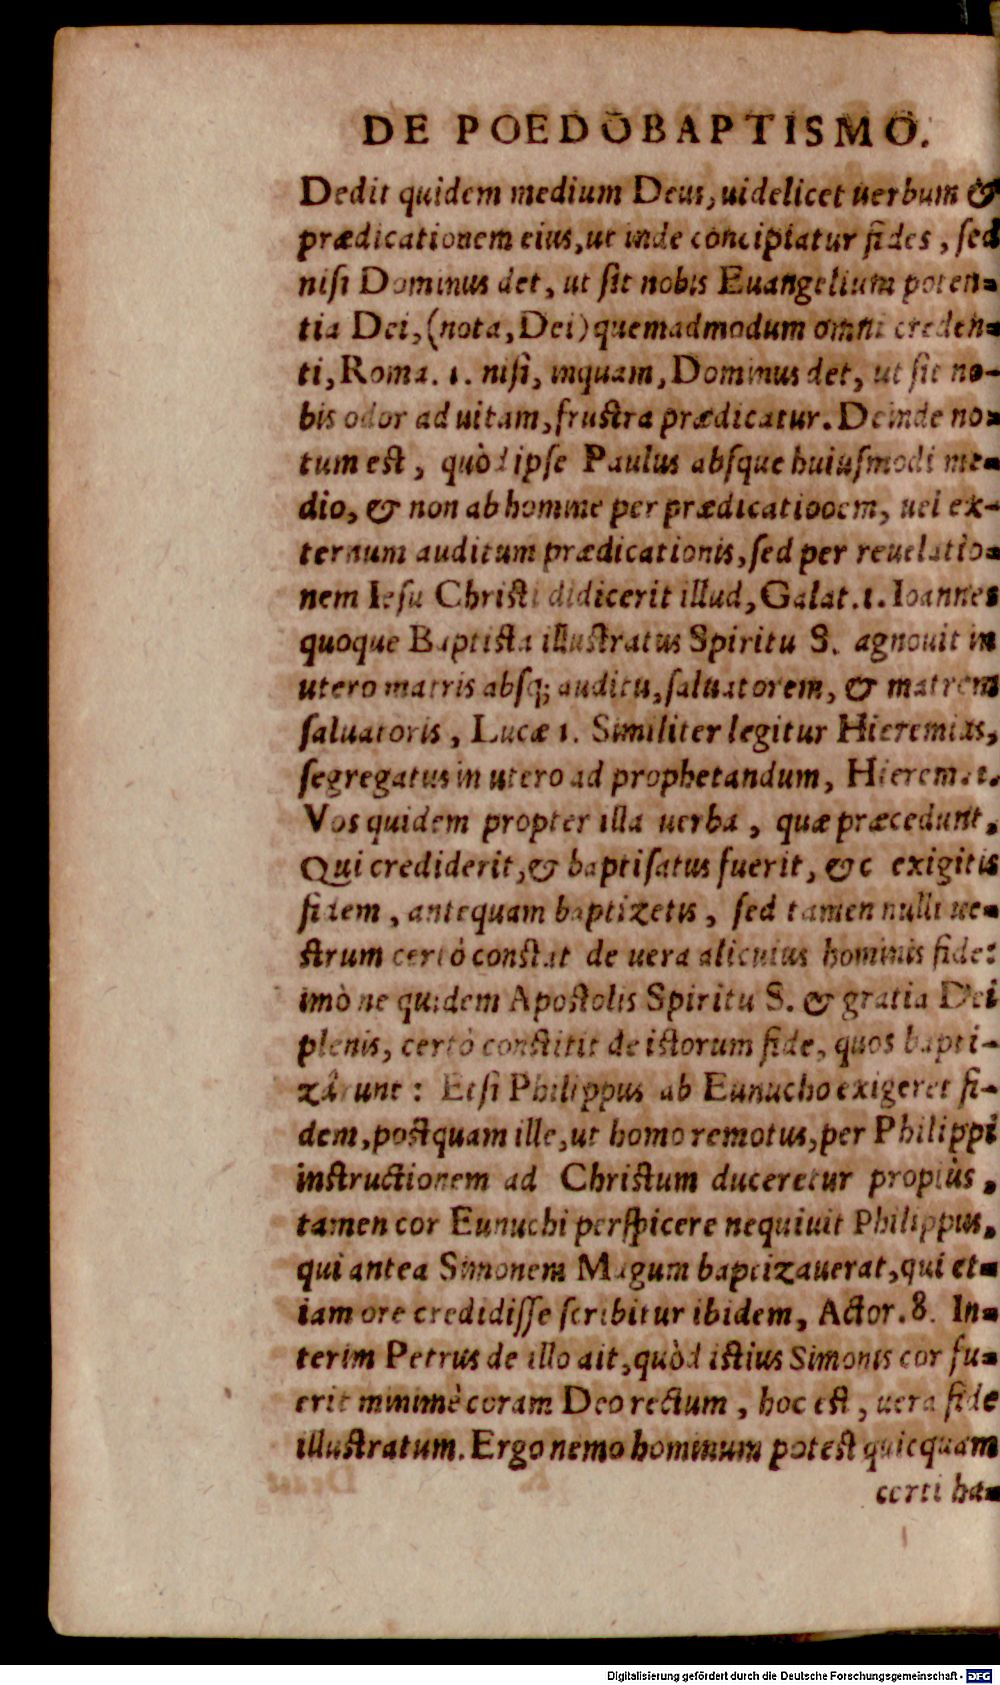 DE POEDOBAPTISMO.
Dedit quidem medium Deus, uidelicet uerbum &
prædicationem eius, ut inde concipiatur fides, sed
nisi Dominus det, ut sit nobis Euangelium poten-
tia Dei, (nota, Dei) quemadmodum omni creden-
ti, Roma. 1. nisi, inquam, Dominus det, ut sit no-
bis odor ad uitam, frustra prædicatur. Deinde no-
tum est, quòd ipse Paulus absque huiusmodi me-
dio, & non ab homine per prædicatioocm, uel ex-
ternum auditum prædicationis, sed per reuelatio-
nem Iesu Christi didicerit illud, Galat. 1. Ioannes
quoque Baptista illustratus Spiritu S. agnouit in
utero matris absq; auditu, saluatorem, & matrem
saluatoris, Lucæ 1. Similiter legitur Hieremias,
segregatus in utero ad prophetandum, Hierem. 1.
Vos quidem propter illa uerba, quæ præcedunt,
Qui crediderit, & baptisatus fuerit, &c exigitis
fidem, antequam baptizetis, sed tamen nulli ue-
strum certò constat de uera alicuius hominis fide:
imò ne quidem Apostolis Spiritu S. & gratia Dei
plenis, certò constitit de istorum fide, quos bapti-
zârunt: Etsi Philippus ab Eunucho exigeret fi-
dem, postquam ille, ut homo remotus, per Philippi
instructionem ad Christum duceretur propiùs,
tamen cor Eunuchi perspicere nequiuit Philippus,
qui antea Simonem Magum baptizauerat, qui et-
iam ore credidisse scribitur ibidem, Actor. 8. In-
terim Petrus de illo ait, quòd istius Simonis cor fu-
erit minimè coram Deo rectum, hoc est, uera fide
illustratum. Ergo nemo hominum potest quicquam
certi ha-
Digitalisierung gefördert durch die Deutsche Forschungsgemeinschaft - DFG